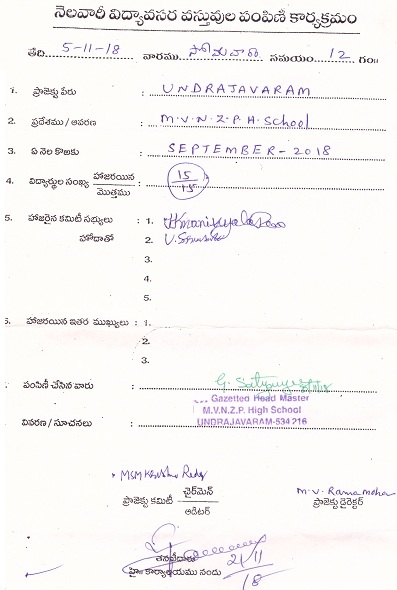 నెలవారీ విద్యావసర వస్తువుల పంపిణీ కార్యక్రమం
తేది. 5-11-18 వారము సోమవారం సమయం 12 గం॥
1. ప్రాజెక్టు పేరు : UNDRAJAVARAM
2. ప్రదేశము / ఆవరణ : M.V.N.Z.P.H. School
3. ఏ నెల కొఱకు : SEPTEMBER - 2018
4. విద్యార్థుల సంఖ్య హాజరయిన / మొత్తము : 15 / 15
5. హాజరైన కమిటీ సభ్యులు : 1.
హోదాతో 2.
3.
4.
5.
6. హాజరయిన ఇతర ముఖ్యులు : 1.
2.
3.
పంపిణీ చేసిన వారు :
Gazetted Head Master
M.V.N.Z.P. High School
వివరణ / సూచనలు : UNDRAJAVARAM-534 216
MSM Krishna Reddy
ప్రాజెక్టు కమిటీ ఛైర్‌మెన్ / ఆడిటర్
M.V. Rama Mohan
ప్రాజెక్టు డైరెక్టర్
కార్యాలయము నందు
21/11/18